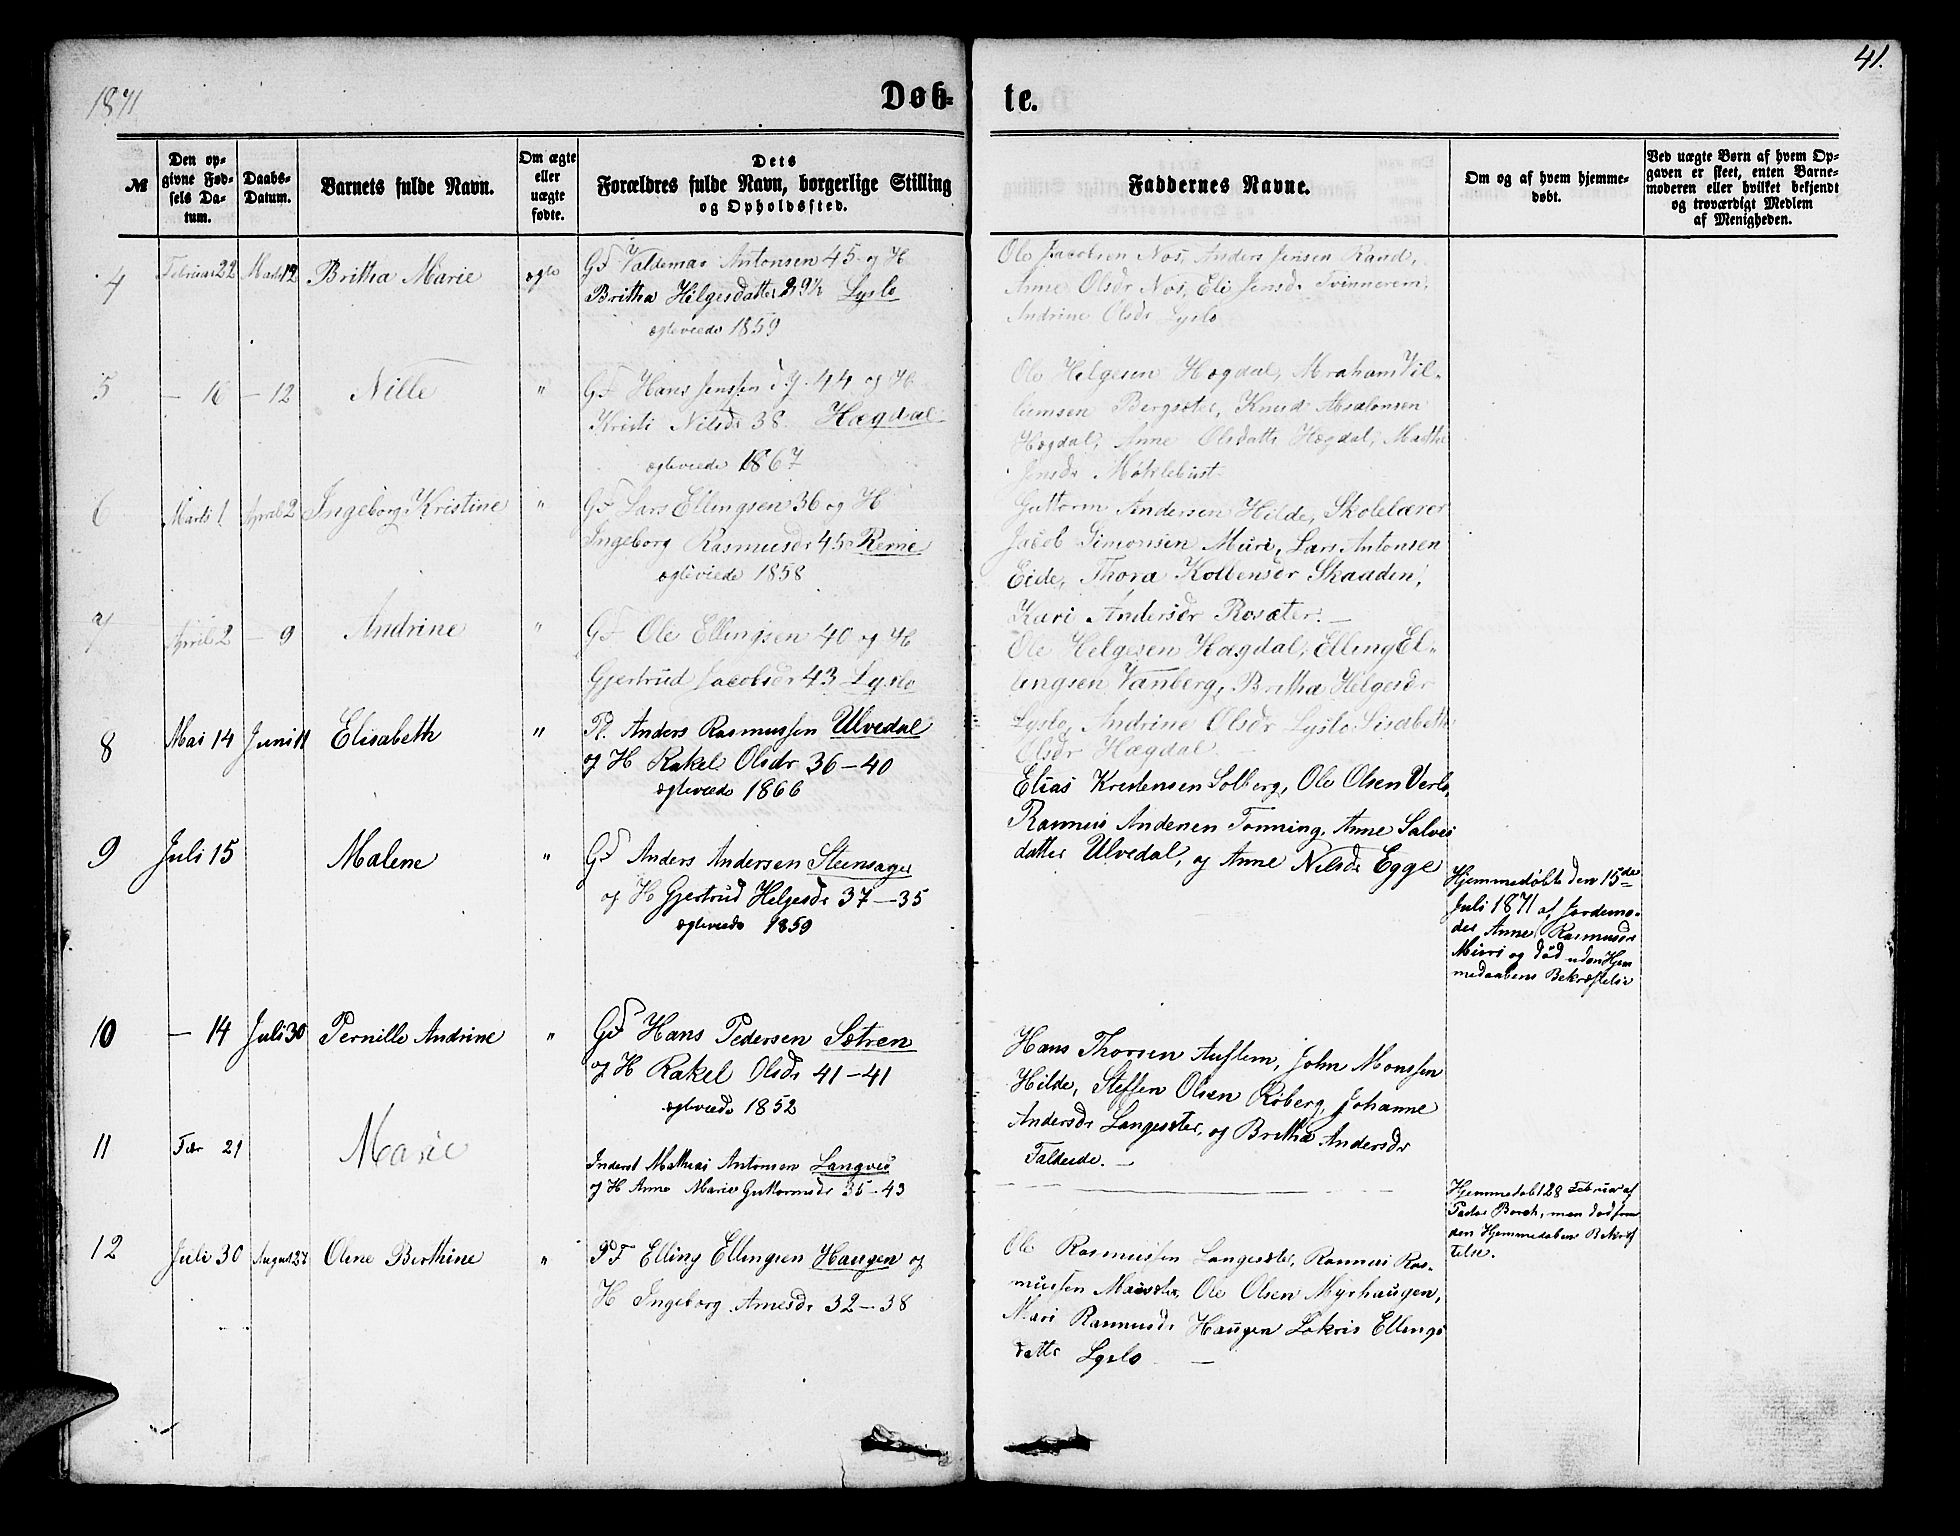 1871
Døb-
te.
41.
№
Den op-
givne Fød-
sels Da-
tum.
Daabs-
Datum.
Barnets fulde Navn.
Om ægte
eller
uægte
fødte.
Dets
Forældres fulde Navn, borgerlige Stilling
og Opholdssted.
Faddernes Navne.
Om og af hvem hjemme-
døbt.
Ved uægte Børn af hvem Op-
gaven er skeet, enten Barne-
moderen eller hvilket bekjendt
og troværdigt Medlem
af Menigheden.
4
Februar 22
Marts 12
Britha Marie
ægte
GF Valdemar Antonsen 45 og H
Britha Helgesdatter 29½ Lyslo
ægteviede 1859
Ole Jacobsen Nos, Anders Jensen Rand,
Anne Olsdr Nos, Eli Jensdr Tvinnerem,
Andrine Olsdr Lyslo
5
— 16
— 12
Nille
"
GF Hans Jenssen d.y. 44 og H
Kristi Nilsdr 38. Hægdal
ægteviede 1867
Ole Helgesen Hægdal, Abraham Vil-
lumsen Bergsæter, Knud Absalonsen
Hægdal, Anne Olsdattr Hægdal, Marthe
Jensdr Møklebust
6
Marts 1
April 2
Ingeborg Kristine
"
GF Lars Ellingsen 36 og H
Ingeborg Rasmusdr 45 Reme
ægteviede 1858
Guttorm Andersen Hilde, Skolelærer
Jacob Simonsen Muri, Lars Antonsen
Eide, Thora Kolbensdr Skaaden,
Kari Andersdr Rosæter. —
7
April 2
— 9
Andrine
"
GF Ole Ellingsen 40 og H
Gjertrud Jacobsdr 43 Lyslo
Ole Helgesen Hægdal, Elling El-
lingsen Vanberg, Britha Helgesdr
Lyslo, Andrine Olsdr Lyslo Lisabeth
Olsdr Hægdal. —
8
Mai 14
Juni 11
Elisabeth
"
Pl. Anders Rasmussen Ulvedal
og H Rakel Olsdr 36–40
ægteviede 1866
Elias Krestensen Solberg, Ole Olsen Verlo,
Rasmus Andersen Tonning, Anne Salves
datter Ulvedal, og Anne Nilsdr Egge
9
Juli 15
Malene
"
GF Anders Andersen Steensager
og H Gjertrud Helgesdr 37–35
ægteviede 1859
Hjemmedøbt den 15de
Juli 1871 af Jordemo-
der Anne Rasmusdr
Muri og død uden Hjem
medaabens Bekræftelse
10
— 14
Juli 30
Pernille Andrine
"
GF Hans Pedersen Sætren
og H Rakel Olsdr 41–41
ægteviede 1852
Hans Thorsen Auflem, John Monssen
Hilde, Steffen Olsen Roberg, Johanne
Andersdr Langesæter, og Britha Andersdr
Faldeide. —
11
Febr 21
Marie
Inderst Mathias Antonsen Langvei
og H Anne Marie Guttormsdr 35–43
Hjemmedøbt 28 Februar af
Pastor Borch, men død foru
den Hjemmedaaben Bekræf
telse.
12
Juli 30
August 27
Oline Berthine
"
PF Elling Ellingsen Haugen og
H Ingeborg Arnesdr 32–38
Ole Rasmussen Langesæter, Rasmus Ras-
mussen Maurset, Ole Olsen Myrhaugen,
Mari Rasmusdr Haugen Lokris Ellings
datter Lyslo —